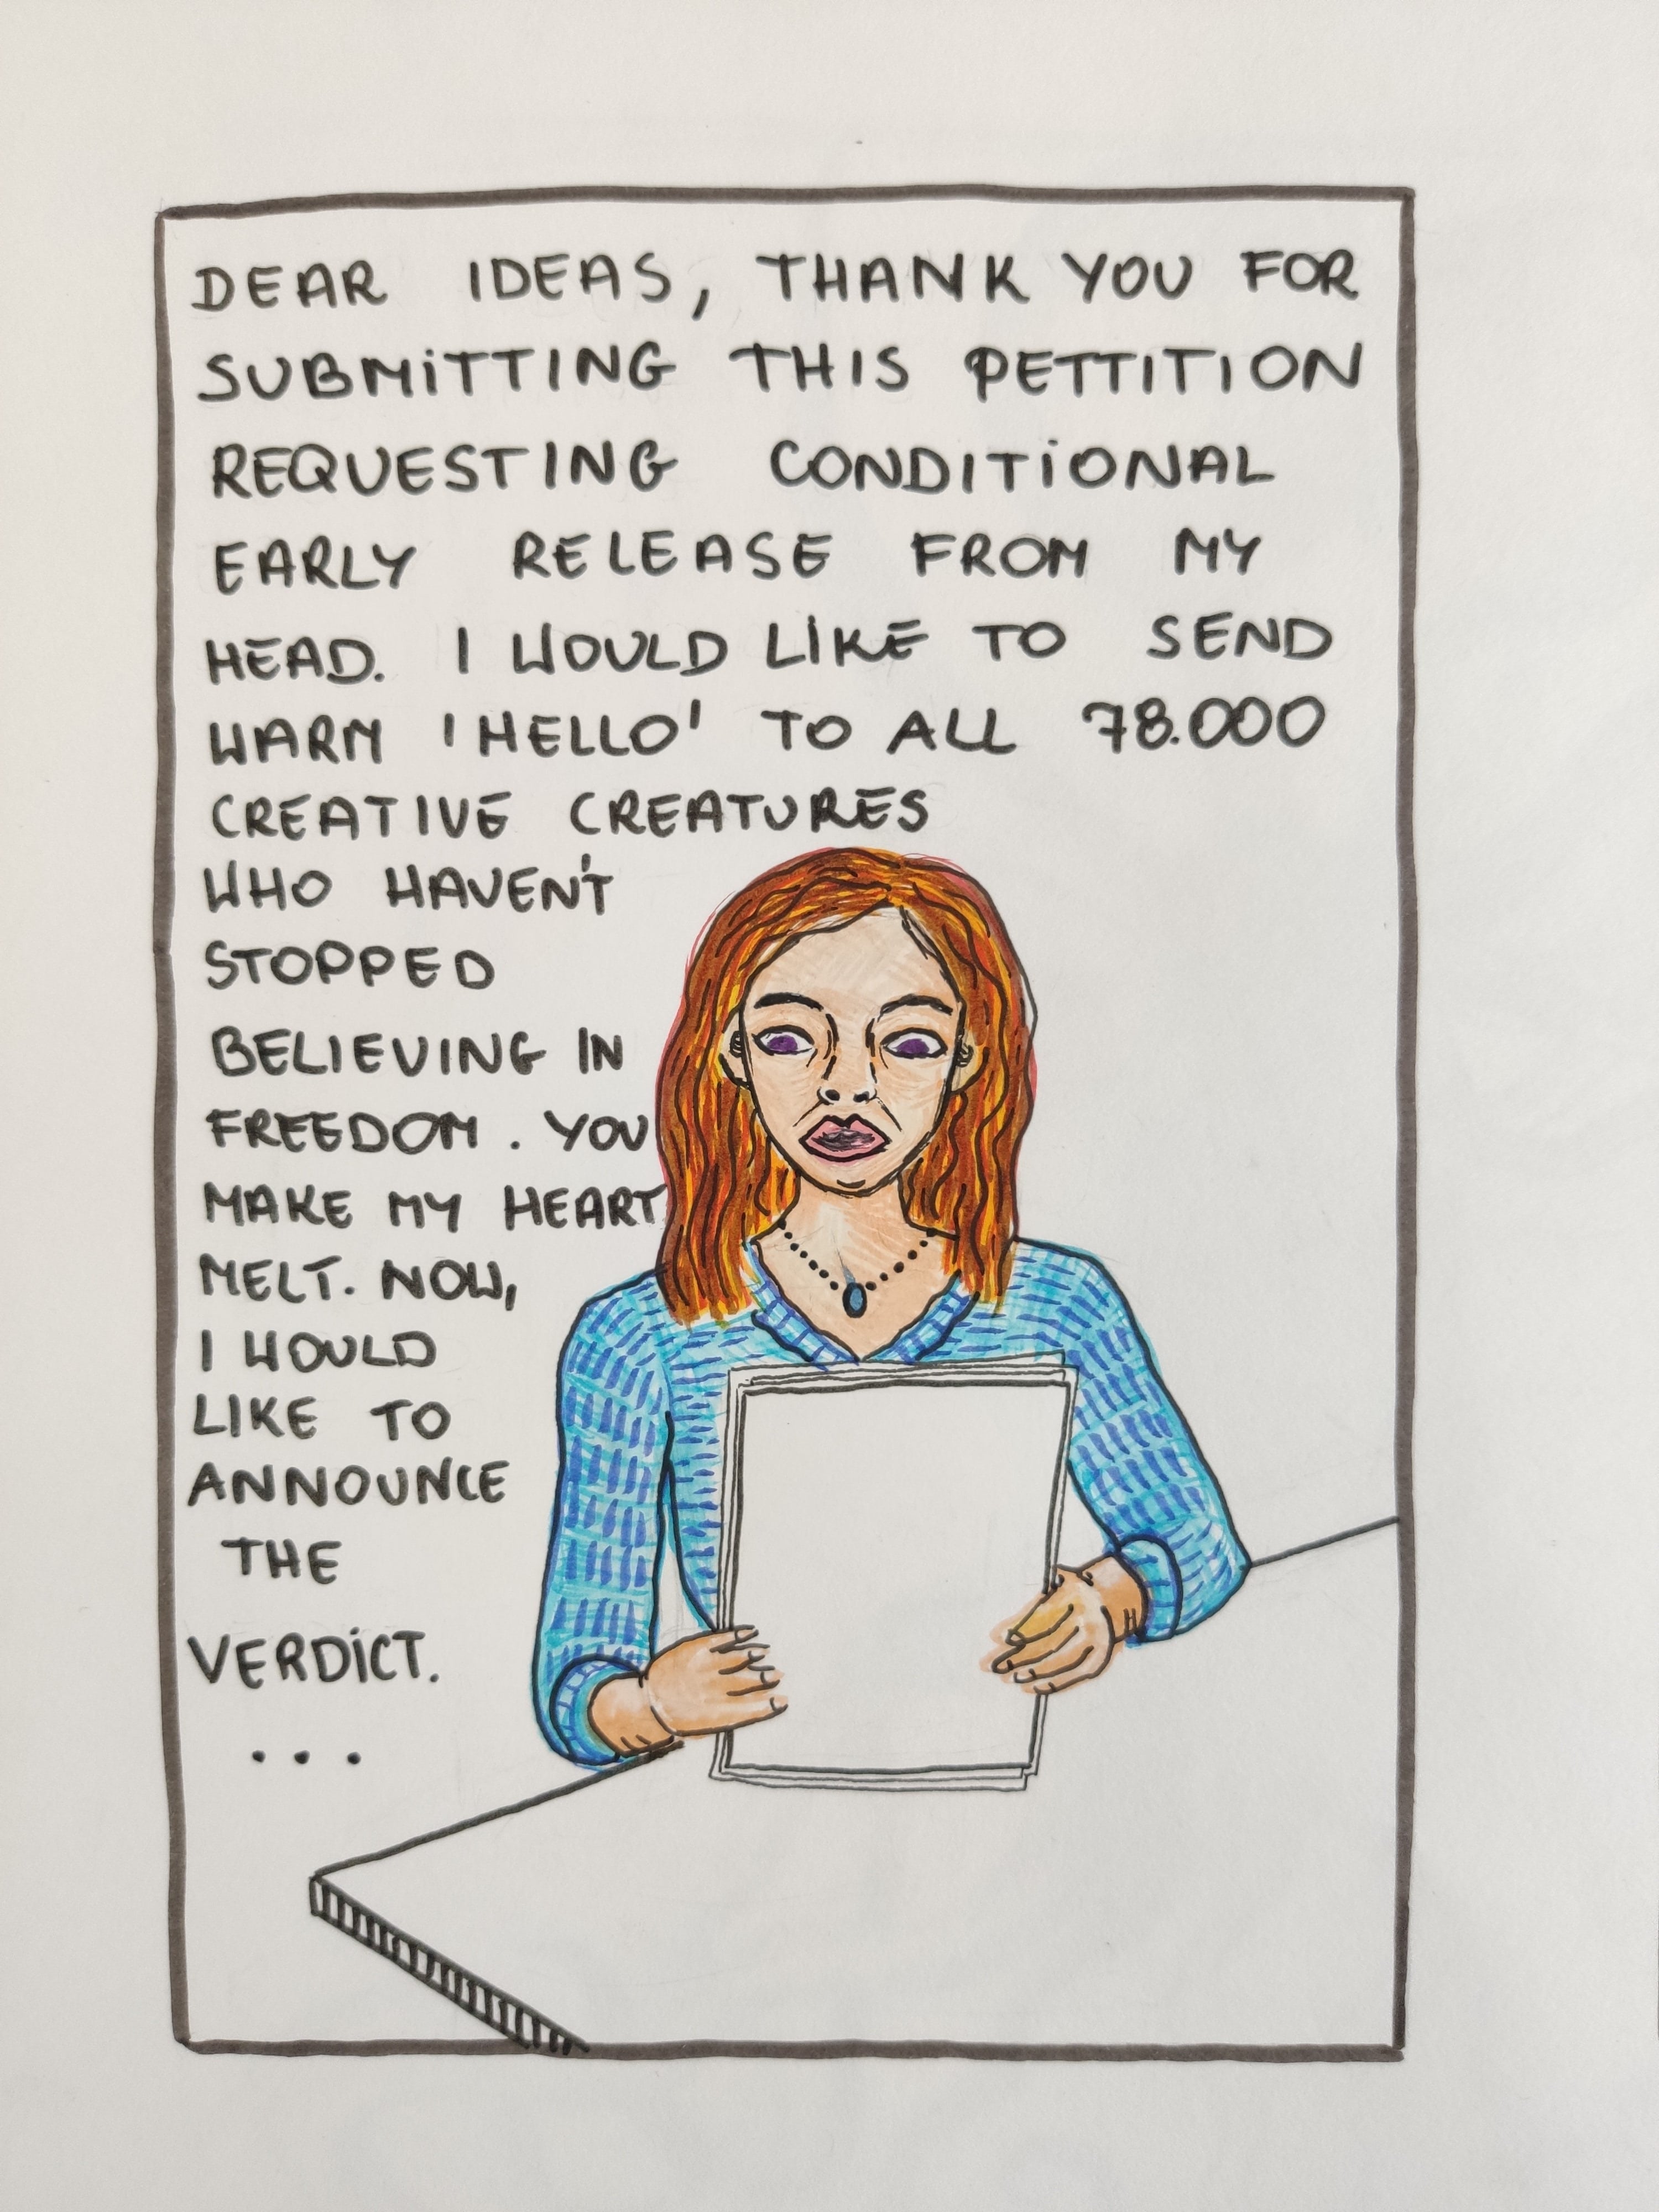 DEAR IDEAS, THANK YOU FOR
SUBMITTING THIS PETTITION
REQUESTING CONDITIONAL
EARLY RELEASE FROM MY
HEAD. I WOULD LIKE TO SEND
WARM 'HELLO' TO ALL 78.000
CREATIVE CREATURES
WHO HAVEN'T
STOPPED
BELIEVING IN
FREEDOM. YOU
MAKE MY HEART
MELT. NOW,
I WOULD
LIKE TO
ANNOUNCE
THE
VERDICT.
...